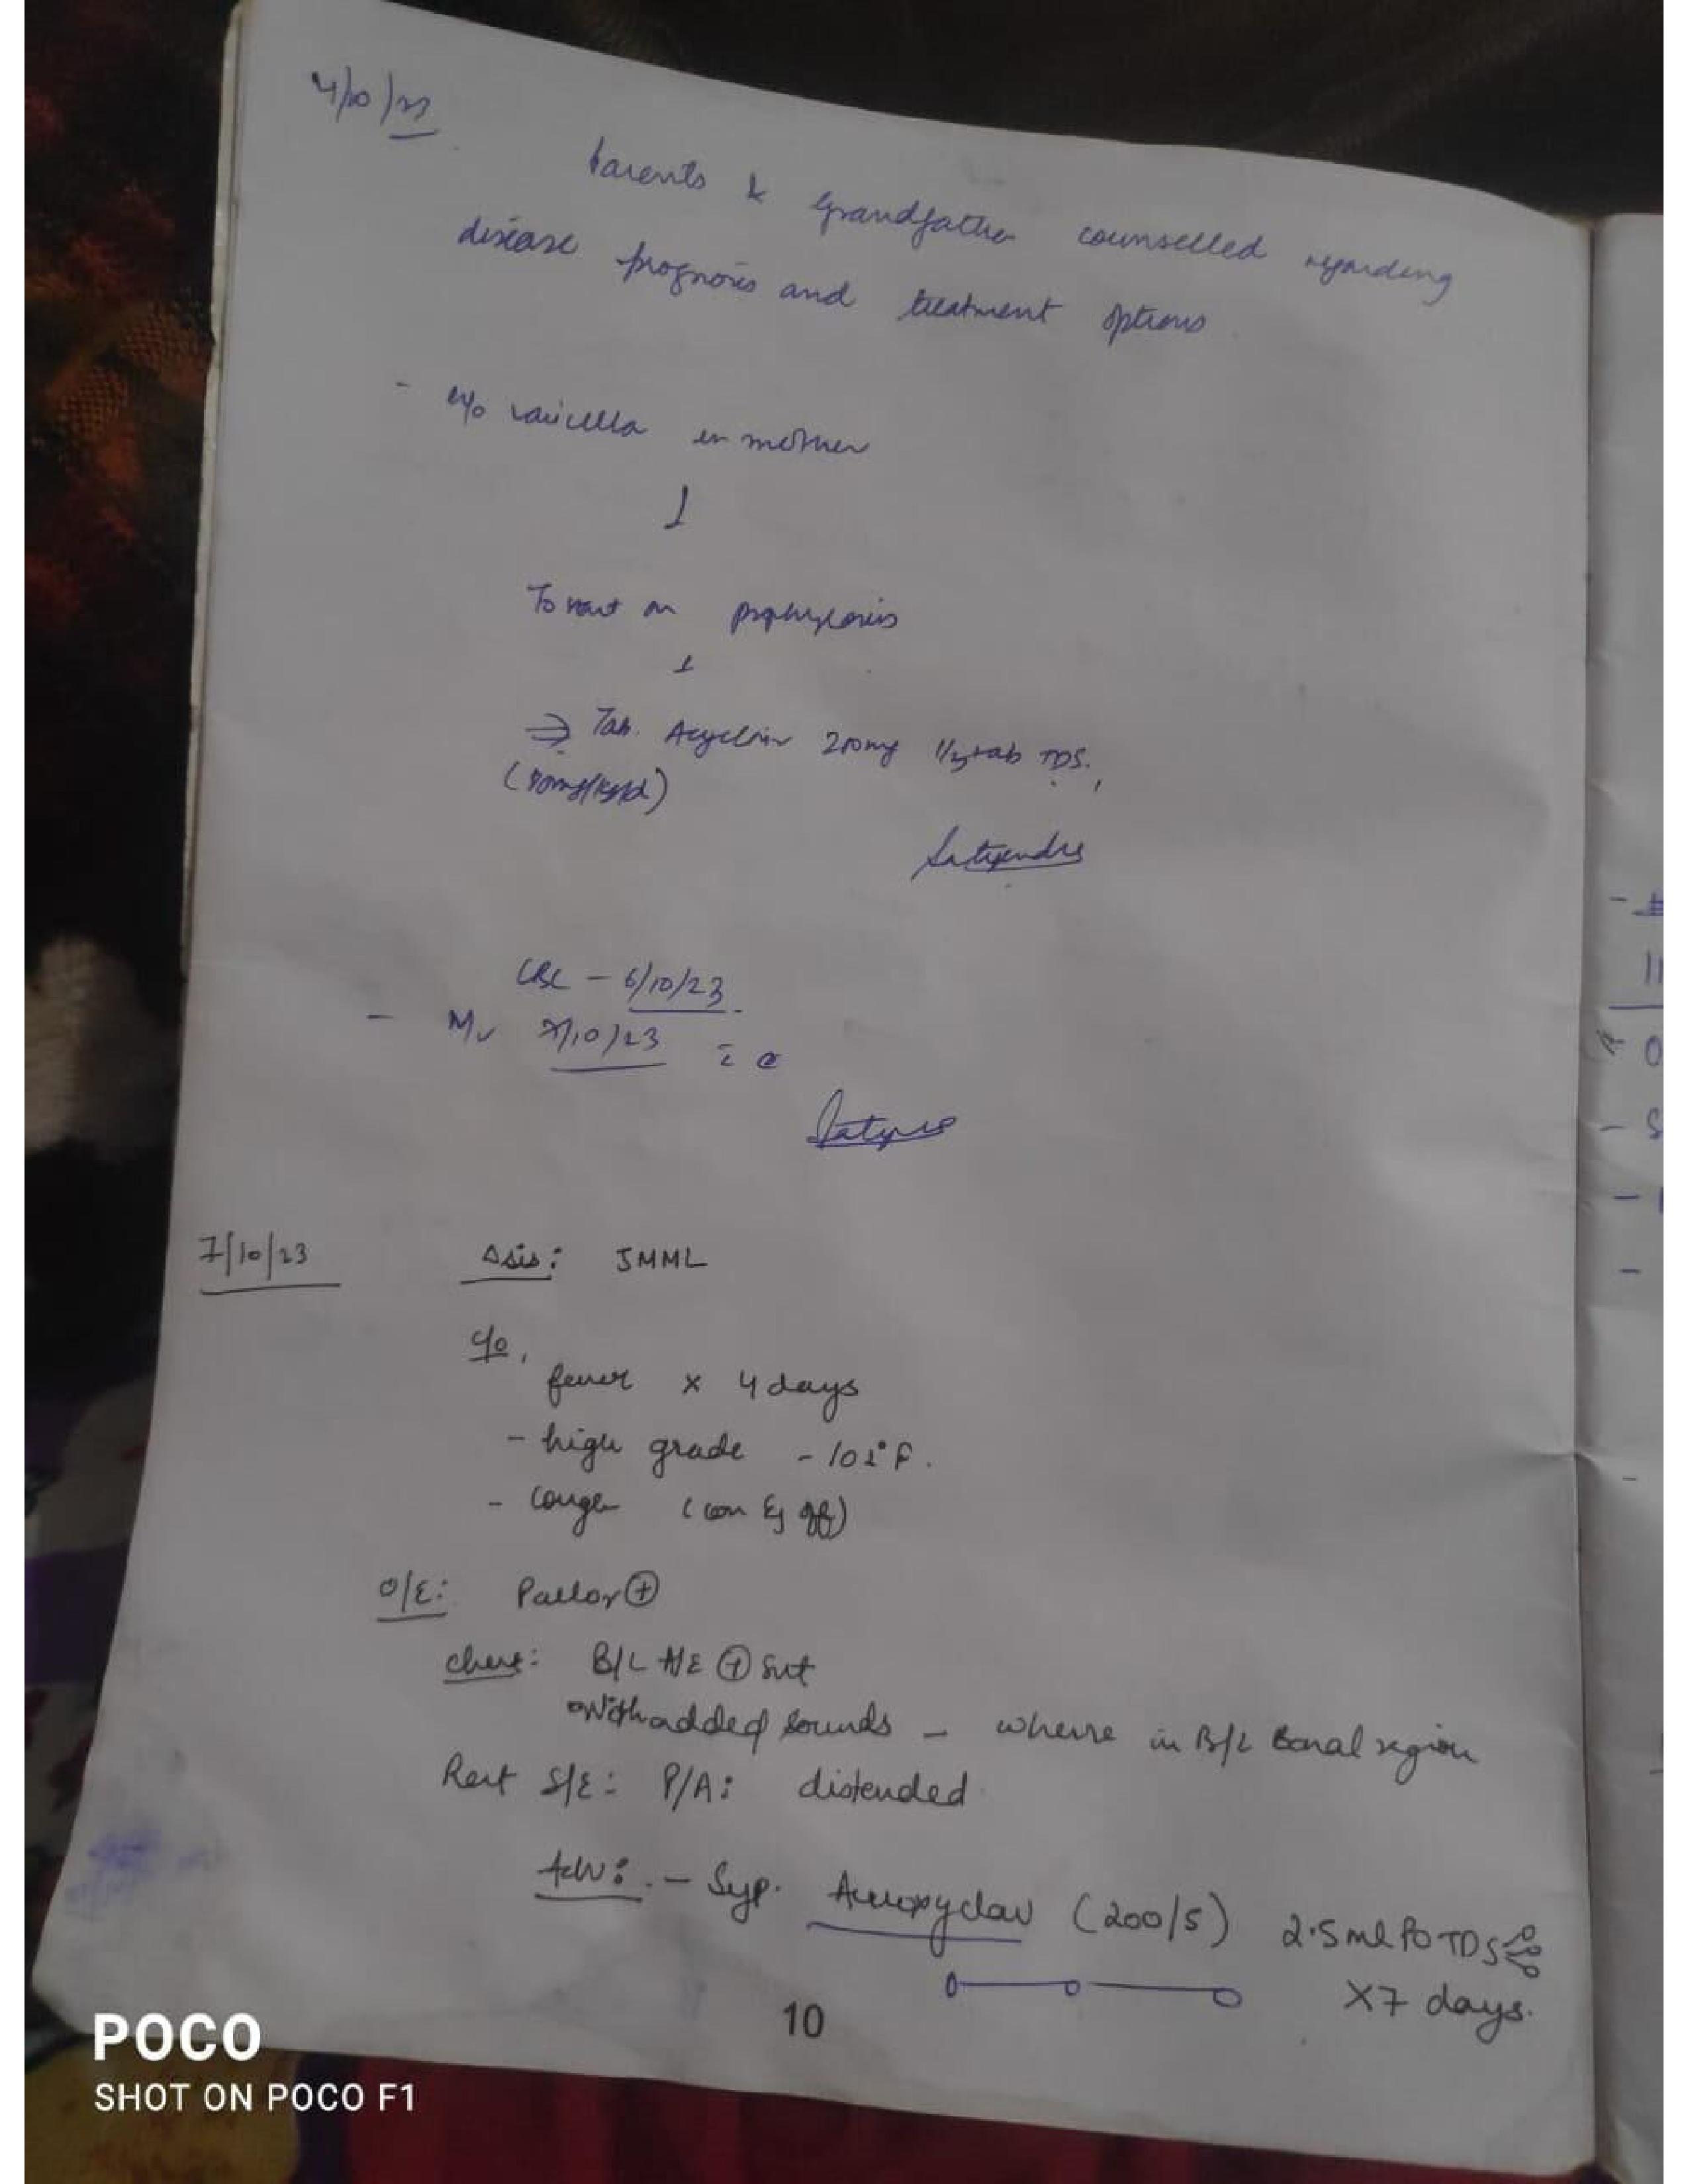 4/10/23
Parents & Grandfather counselled regarding
disease prognosis and treatment options
- H/o varicella in mother
↓
To start on prophylaxis
↓
⇒ Tab. Acyclovir 200mg 1/2 tab TDS.,
mg/kg/d)
CBC - 6/10/23
- 7/10/23 c̄
7/10/23 Δsis: JMML
c/o,
fever × 4 days
- high grade - 102°F.
- cough (on & off)
O/E: Pallor ⊕
chest: B/L A/E ⊕
added sounds - wheeze in B/L Basal region
Rest S/E: P/A: distended
Adv: - Syp. Amoxyclav (200/5) 2.5ml PO TDS
×7 days.
10
POCO
SHOT ON POCO F1